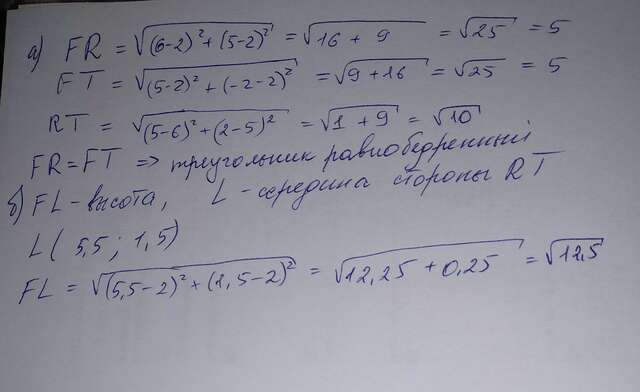 а) FR = √(6-2)²+(5-2)² = √16 + 9 = √25 = 5
FT = √(5-2)²+(-2-2)² = √9+16 = √25 = 5
RT = √(5-6)²+(2-5)² = √1+9 = √10
FR=FT => треугольник равнобедренный
б) FL-высота, L-середина стороны RT
L(5,5; 1,5)
FL = √(5,5-2)²+(1,5-2)² = √12,25+0,25 = √12,5